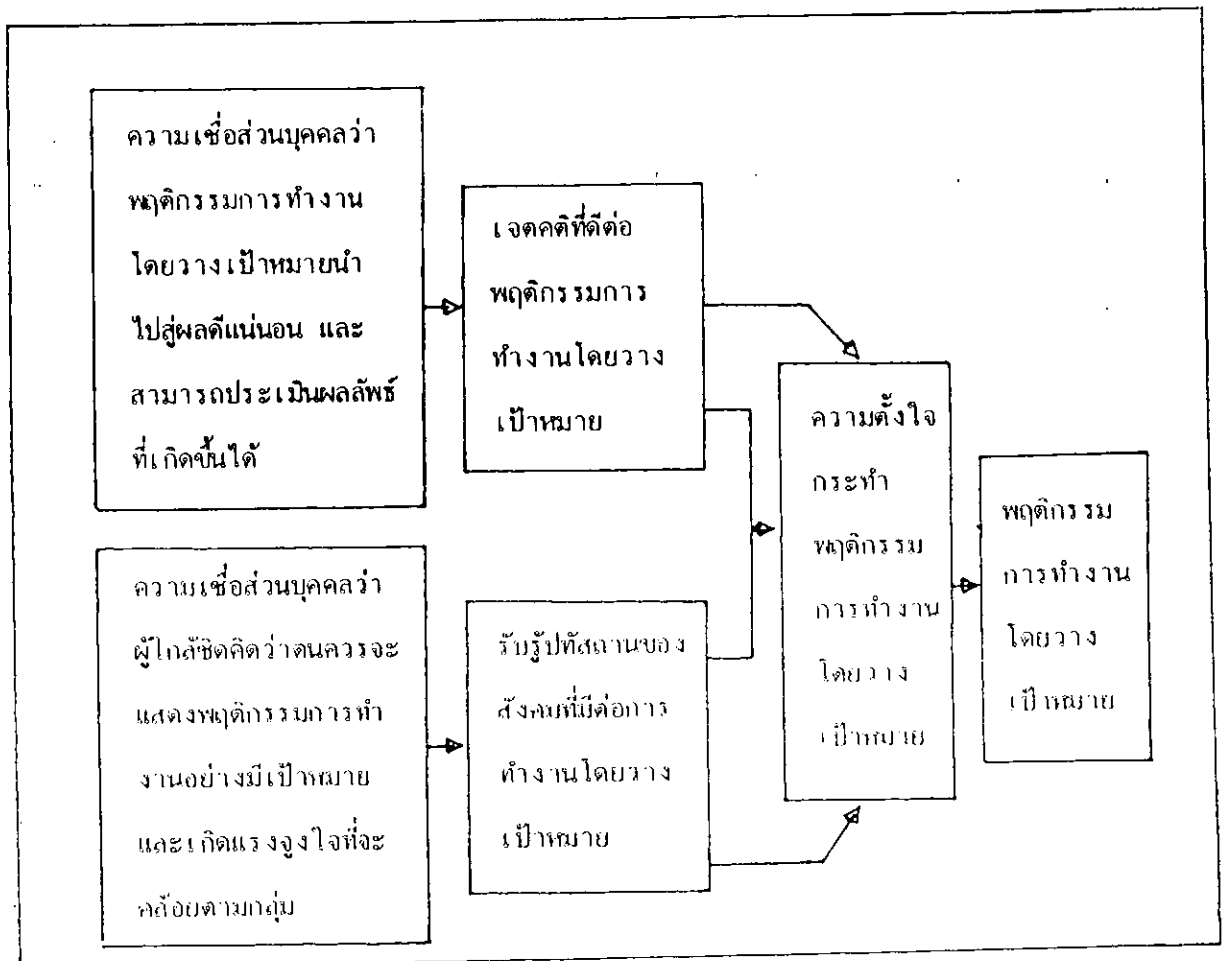 ความเชื่อส่วนบุคคลว่า
พฤติกรรมการทำงาน
โดยวางเป้าหมายนำ
ไปสู่ผลดีแน่นอน และ
สามารถประเมินผลลัพธ์
ที่เกิดขึ้นได้
เจตคติที่ดีต่อ
พฤติกรรมการ
ทำงานโดยวาง
เป้าหมาย
ความเชื่อส่วนบุคคลว่า
ผู้ใกล้ชิดคิดว่าตนควรจะ
แสดงพฤติกรรมการทำ
งานอย่างมีเป้าหมาย
และเกิดแรงจูงใจที่จะ
คล้อยตามกลุ่ม
รับรู้ปทัสถานของ
สังคมที่มีต่อการ
ทำงานโดยวาง
เป้าหมาย
ความตั้งใจ
กระทำ
พฤติกรรม
การทำงาน
โดยวาง
เป้าหมาย
พฤติกรรม
การทำงาน
โดยวาง
เป้าหมาย